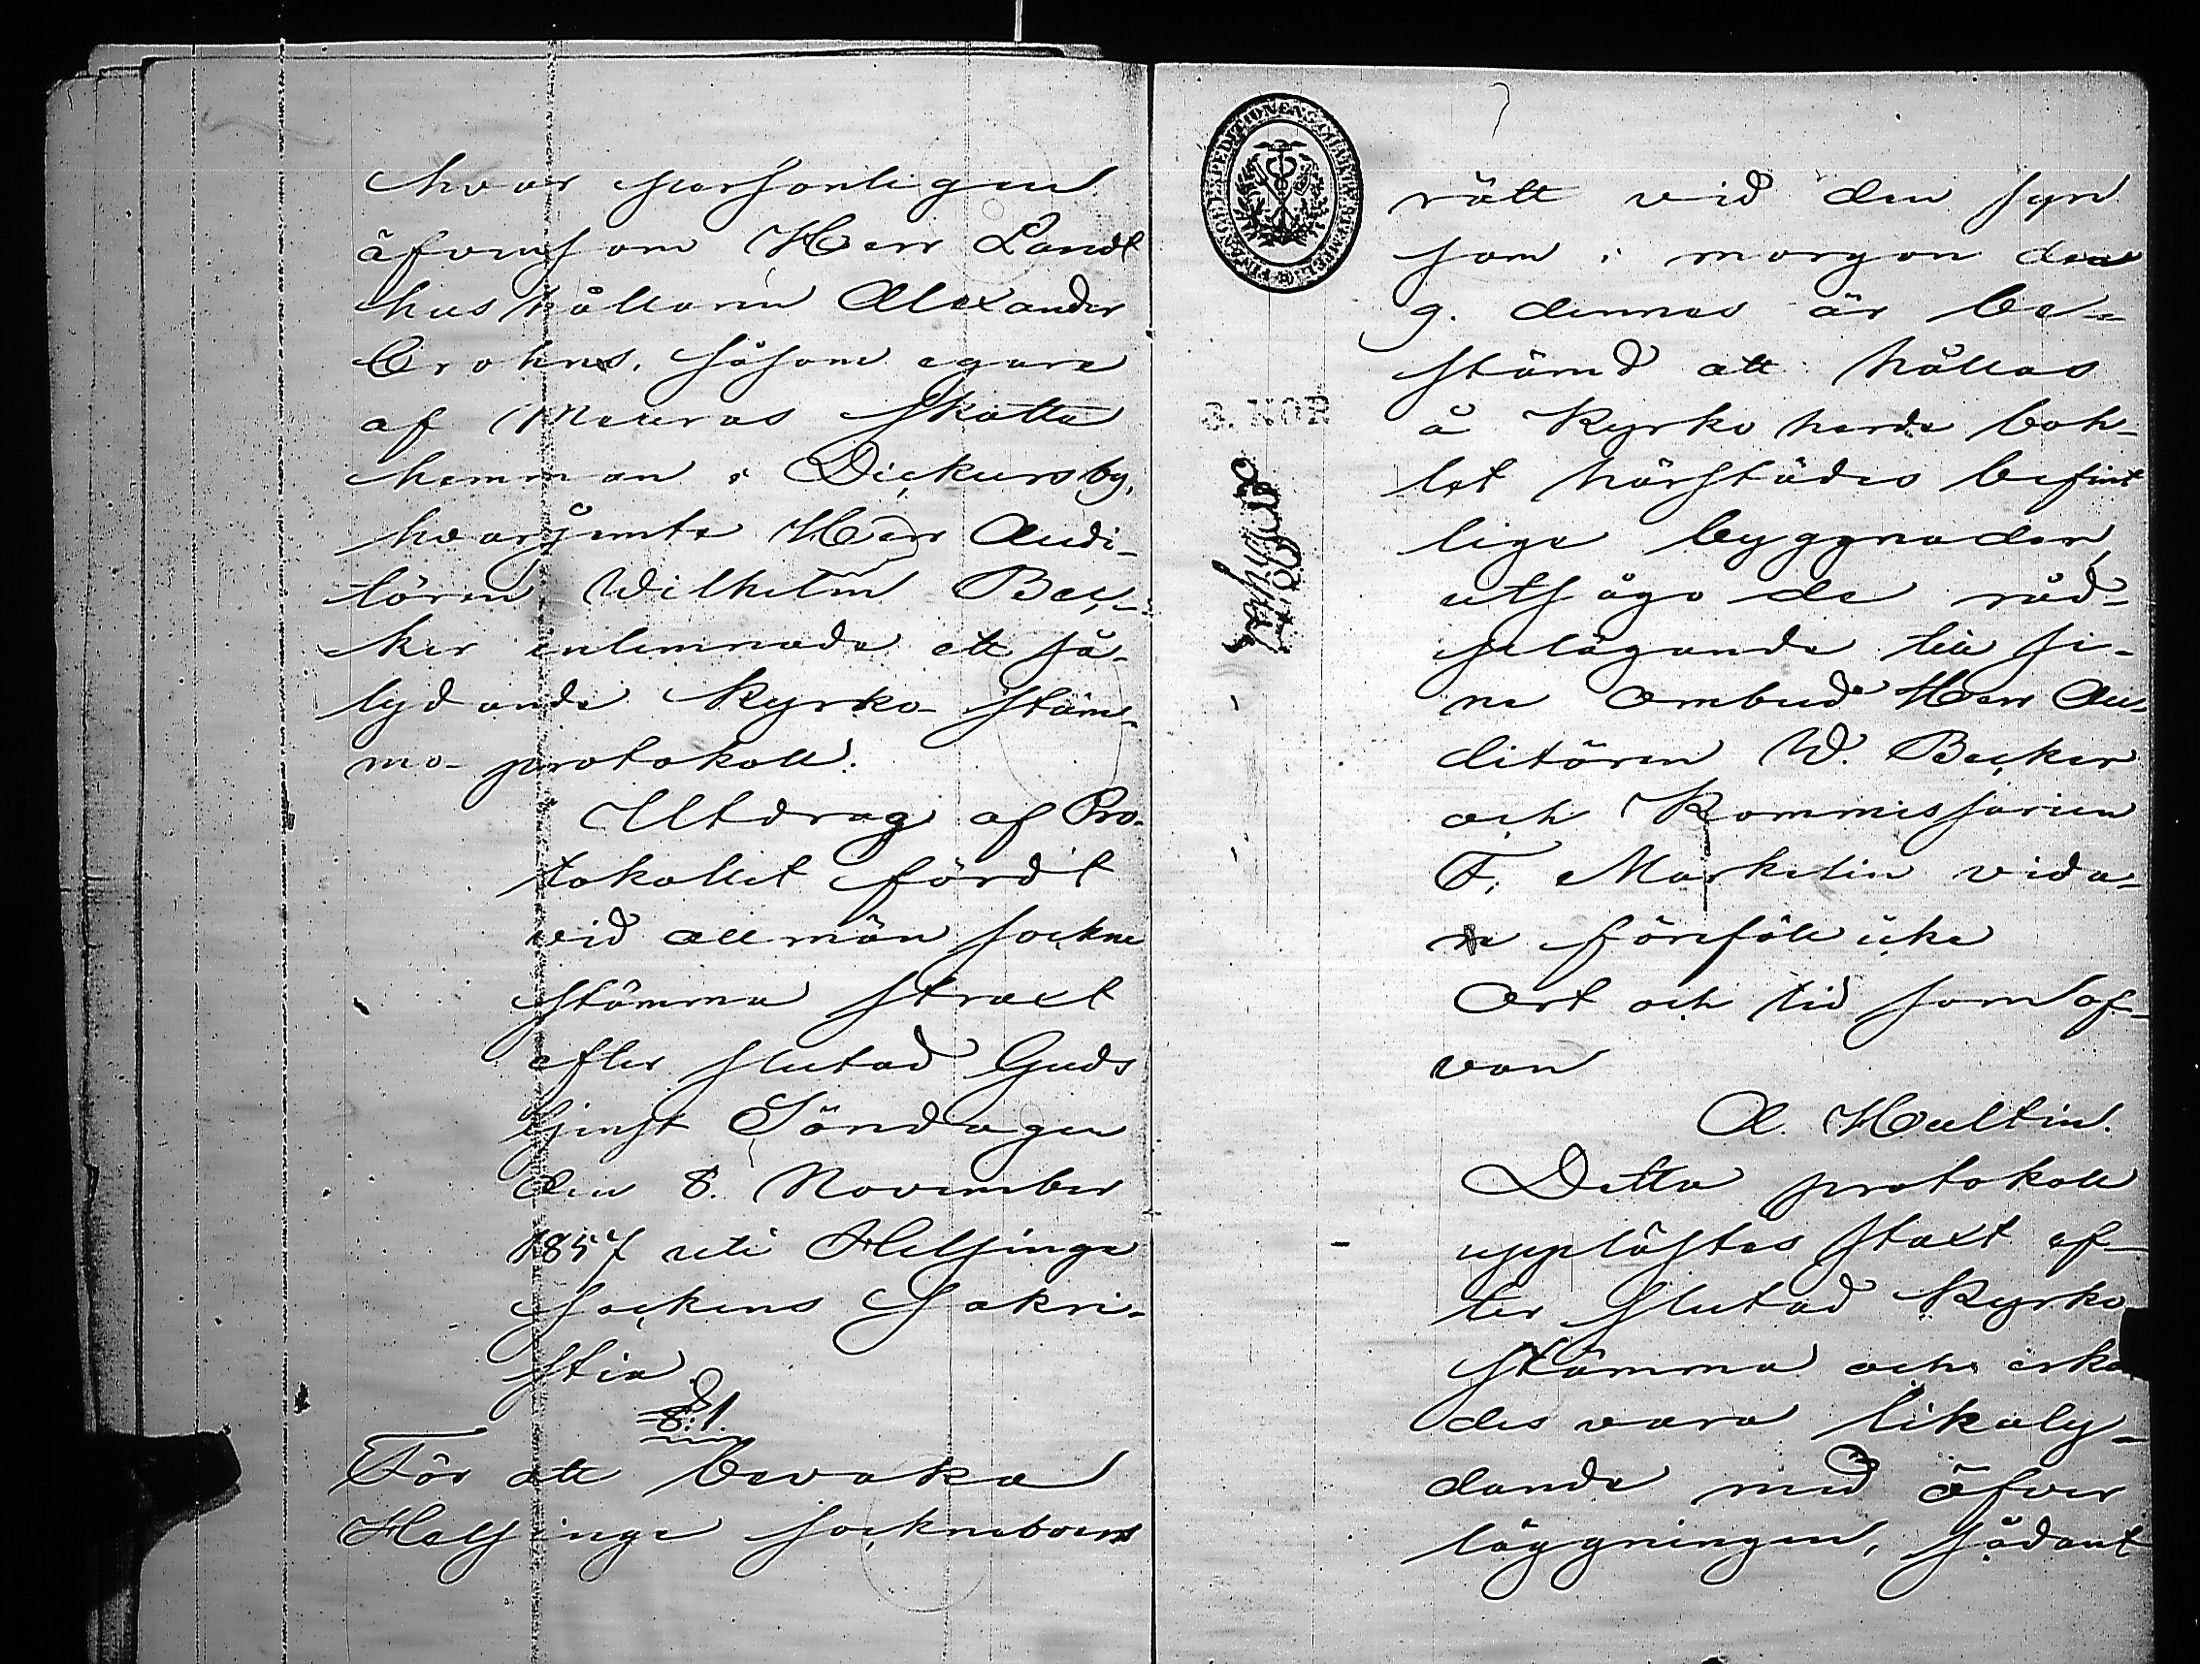 hvar personligen
äfvensom Herr Landt
hushållaren Alexander
Crohns, såsom egare
af Mauras Skatte
hemman i Dickursby,
hvarjemte Herr Audi-
tören Wilhelm Bec-
ker inlemnade ett så-
lydande Kyrko-stäm-
mo-protokoll.
Utdrag af Pro-
tokollet fördt
vid allmän sockne
stämma straxt
efter slutad Guds
tjenst Söndagen
den 8. November
1857 uti Helsinge
sockens Sakri-
stia
§.1.
För att bevaka
Helsinge sockneboers
rätt vid den syn
som i morgon den
9. dennes är be-
stämd att hållas
å Kyrkoherde boh-
let härstädes befint
liga byggnader,
utsågo de råd-
pelägande till si-
na ombud Herr Au-
ditören W. Becker
och Kommissarien
F. Markelin vida-
re föreföll icke
Ort och tid som of-
van
A. Hultin.
Detta protokoll
upplästes staxt ef-
ter slutad Kyrko
stämma och erkän
des vara likaly-
dande med öfver
läggningen, sådant
FINANCE EXPEDITIONENS
3. KOP